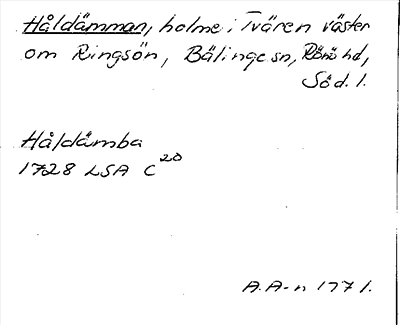 Håldämman, holme i Tvären väster
om Ringsön, Bälinge sn, Rönö hd,
Söd. l.
Håldämba
1728 LSA C20
A.A-n 1771.